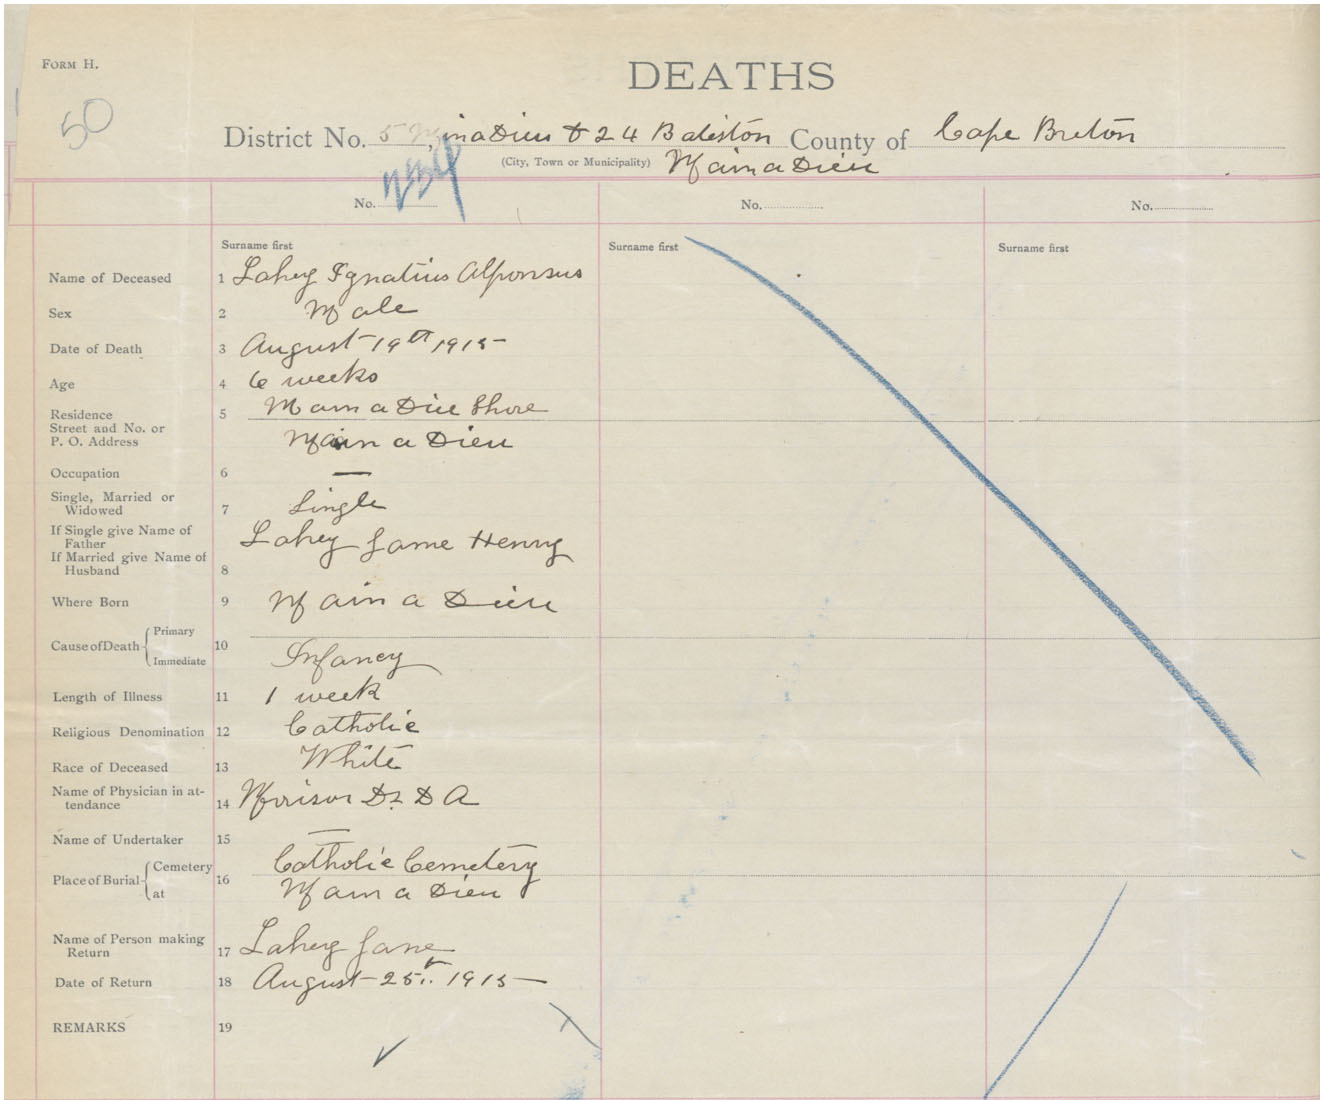 FORM H.
50
DEATHS
District No. 5 Main a Dieu & 24 Baleston County of Cape Breton
(City, Town or Municipality) Main a Dieu
No. No. No.
Surname first Surname first Surname first
Name of Deceased 1 Lahey Ignatius Alponsus
Sex 2 Male
Date of Death 3 August 19th 1915
Age 4 6 weeks
Residence 5 Main a Dieu Shore
Street and No. or
P. O. Address Main a Dieu
Occupation 6 —
Single, Married or
Widowed 7 Single
If Single give Name of
Father Lahey Jame Henry
If Married give Name of
Husband 8
Where Born 9 Main a Dieu
Cause of Death Primary 10
Immediate Infancy
Length of Illness 11 1 week
Religious Denomination 12 Catholic
Race of Deceased 13 White
Name of Physician in at-
tendance 14 Morison Dr D A
Name of Undertaker 15 —
Place of Burial Cemetery 16 Catholic Cemetery
at Main a Dieu
Name of Person making
Return 17 Lahey Jane
Date of Return 18 August 25th 1915
REMARKS 19